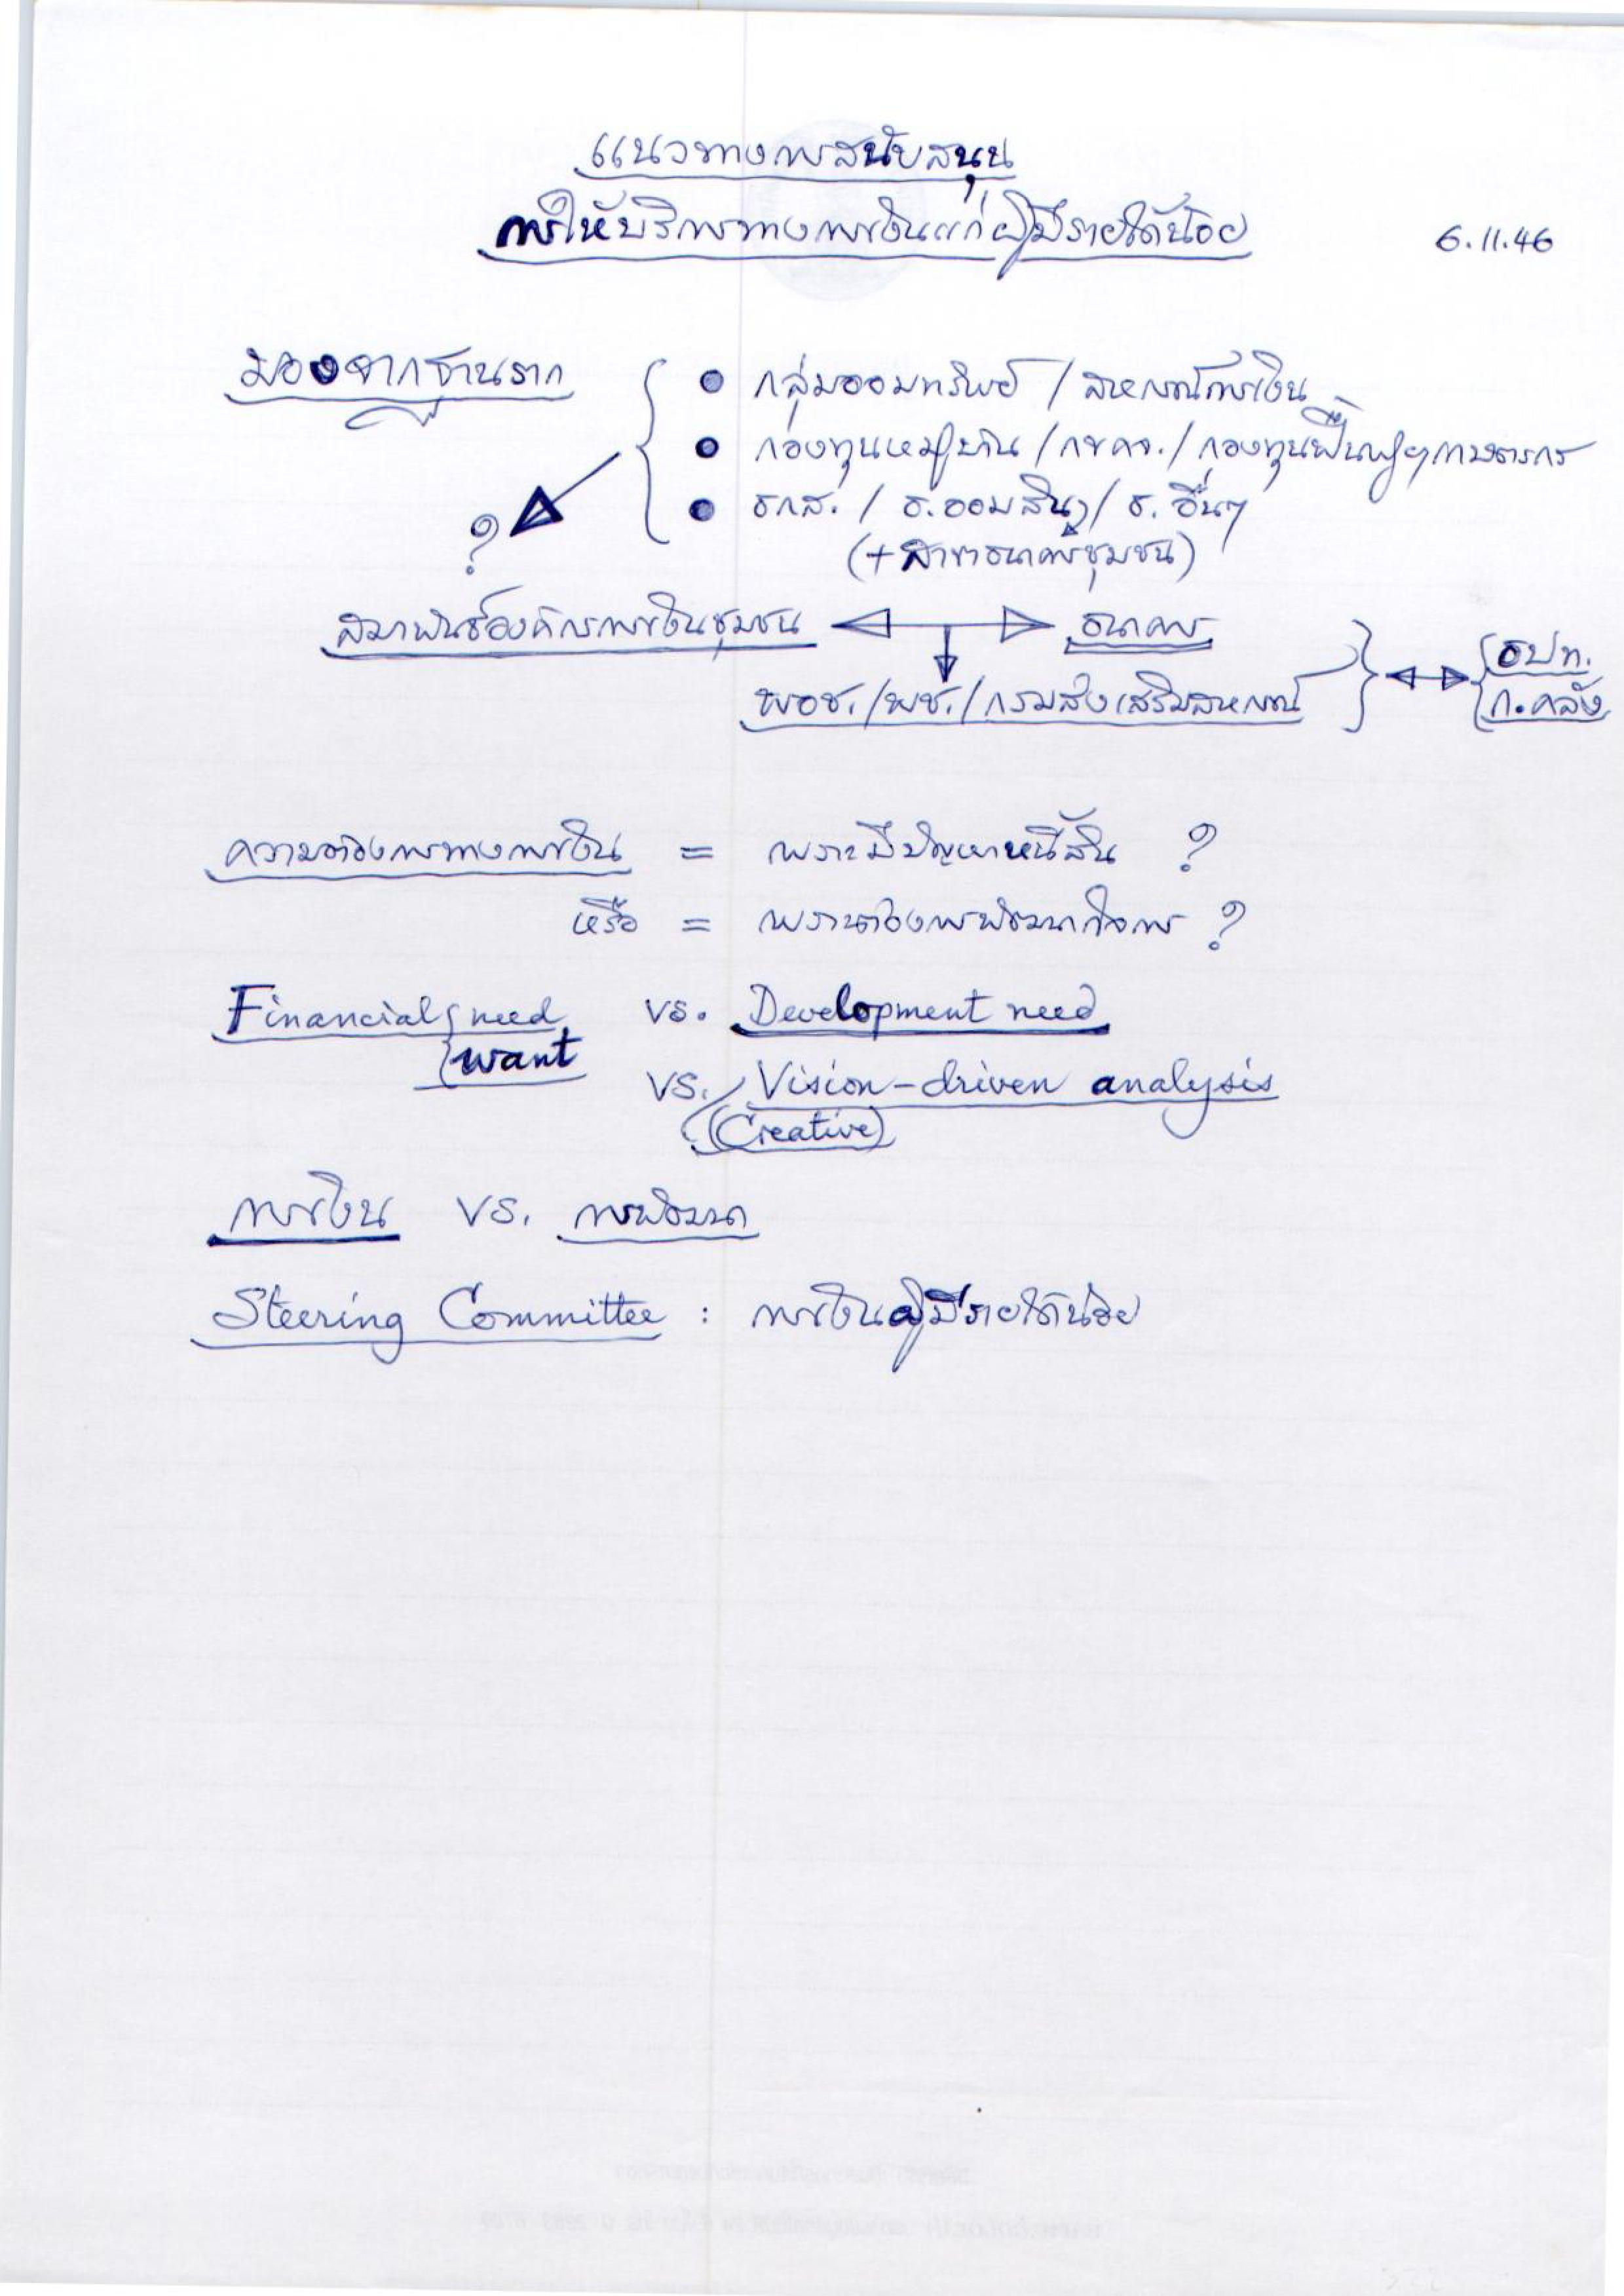 แนวทางการสนับสนุน
การให้บริการทางการเงินแก่ผู้มีรายได้น้อย
6.11.46
มองจากฐานราก
● กลุ่มออมทรัพย์ / สหกรณ์การเงิน
● กองทุนหมู่บ้าน / กขคจ. / กองทุนฟื้นฟูฯเกษตรกร
● ธกส. / ธ.ออมสิน / ธ. อื่นๆ
(+ สาขาธนาคารชุมชน)
?
สมาพันธ์องค์กรการเงินชุมชน ธนาคาร
พอช. / พช. / กรมส่งเสริมสหกรณ์
ธปท.
ก.คลัง
ความต้องการทางการเงิน = เพราะมีปัญหาหนี้สิน ?
หรือ = เพราะต้องการพัฒนากิจการ ?
Financial need vs. Development need
want
vs. Vision-driven analysis
(Creative)
การเงิน vs. การพัฒนา
Steering Committee : การเงินผู้มีรายได้น้อย